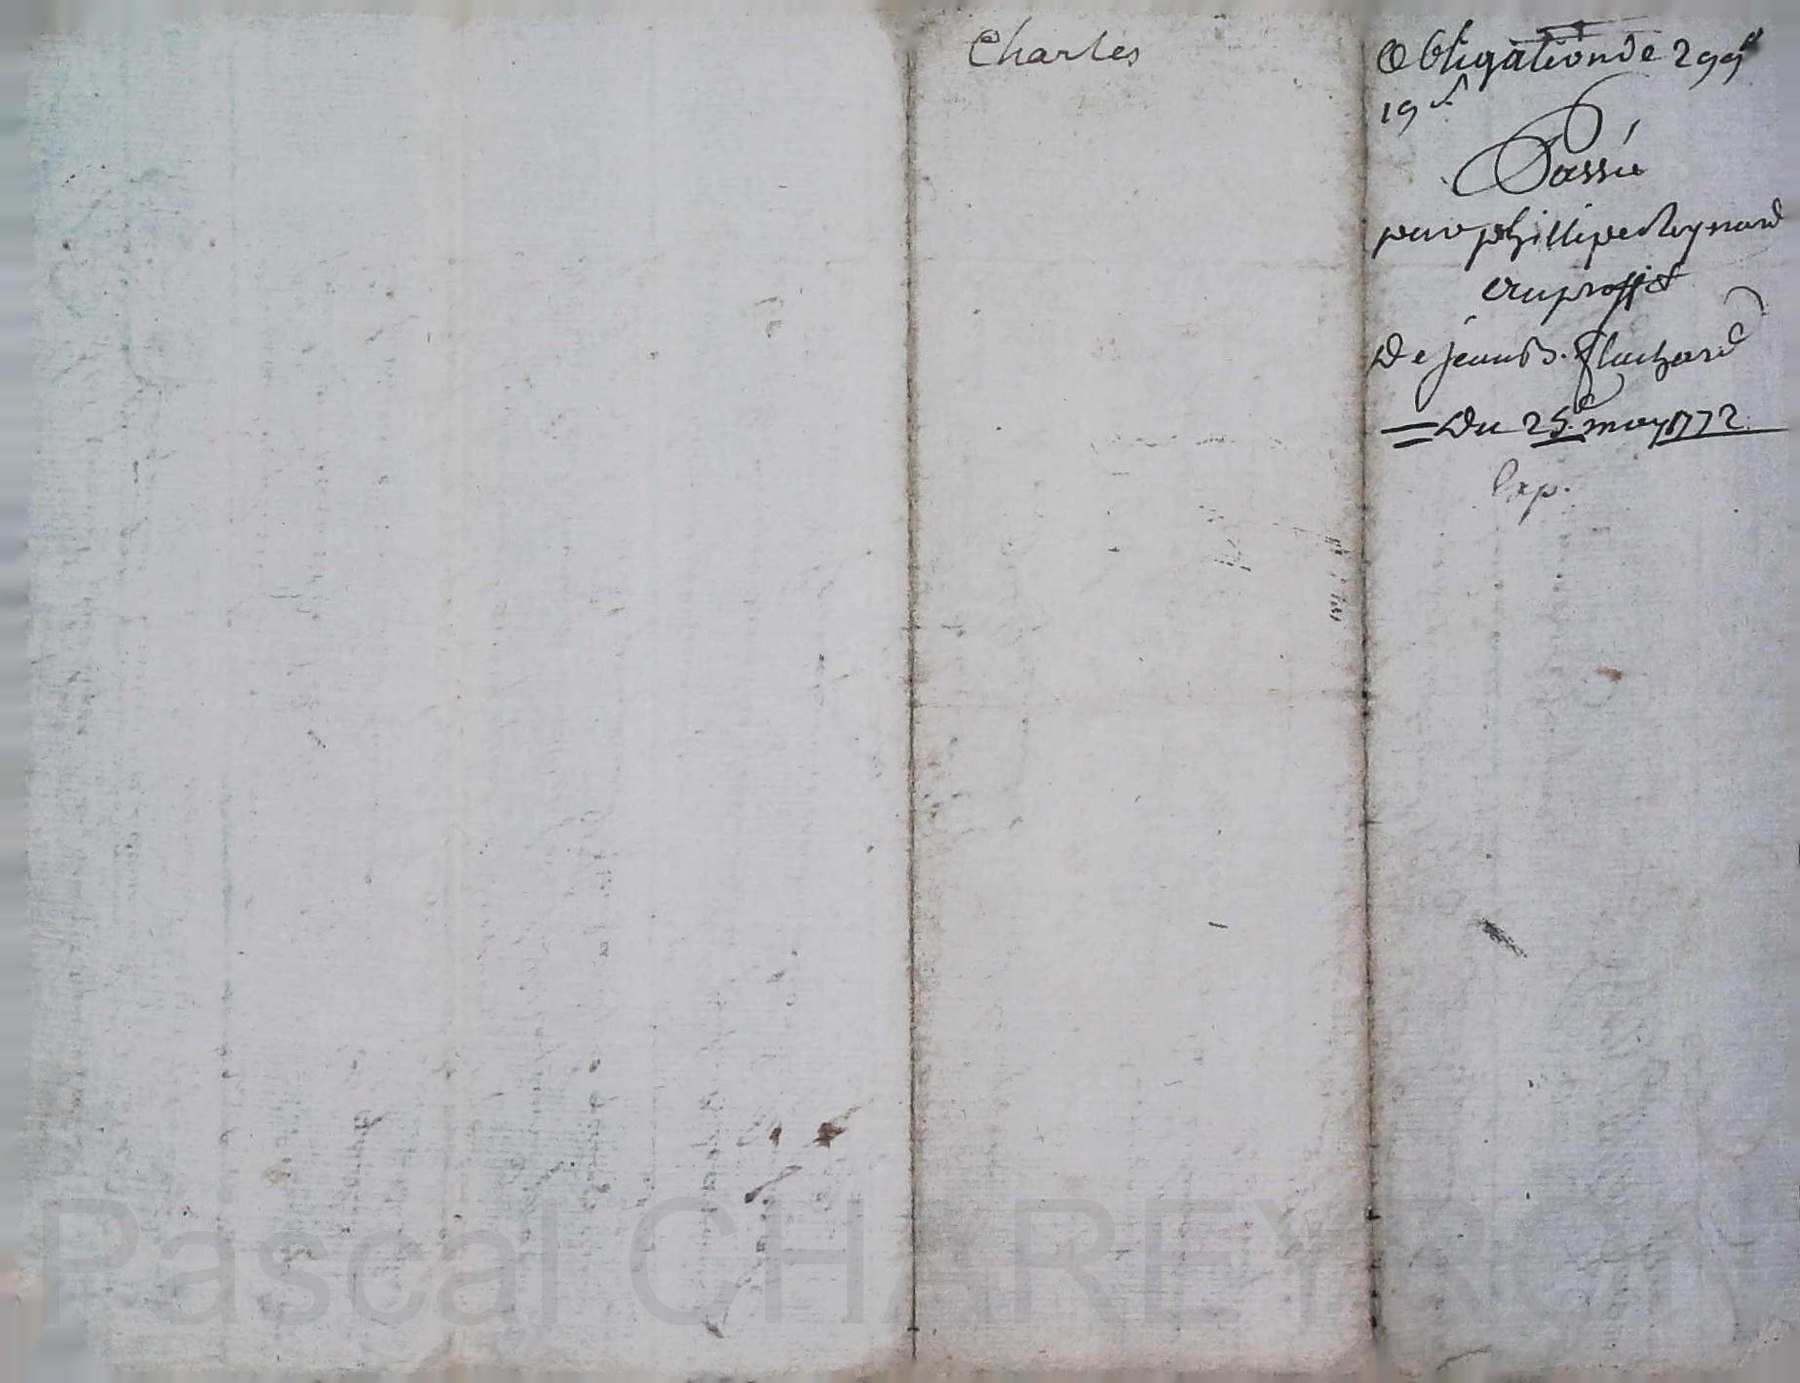 Charles
Obligation de 299#
19 s.
Passée
par phillipe Reynard
au proffit
De jean B. Fluchard
= Du 25e may 1772.
Exp.
Pascal CHAREYRON